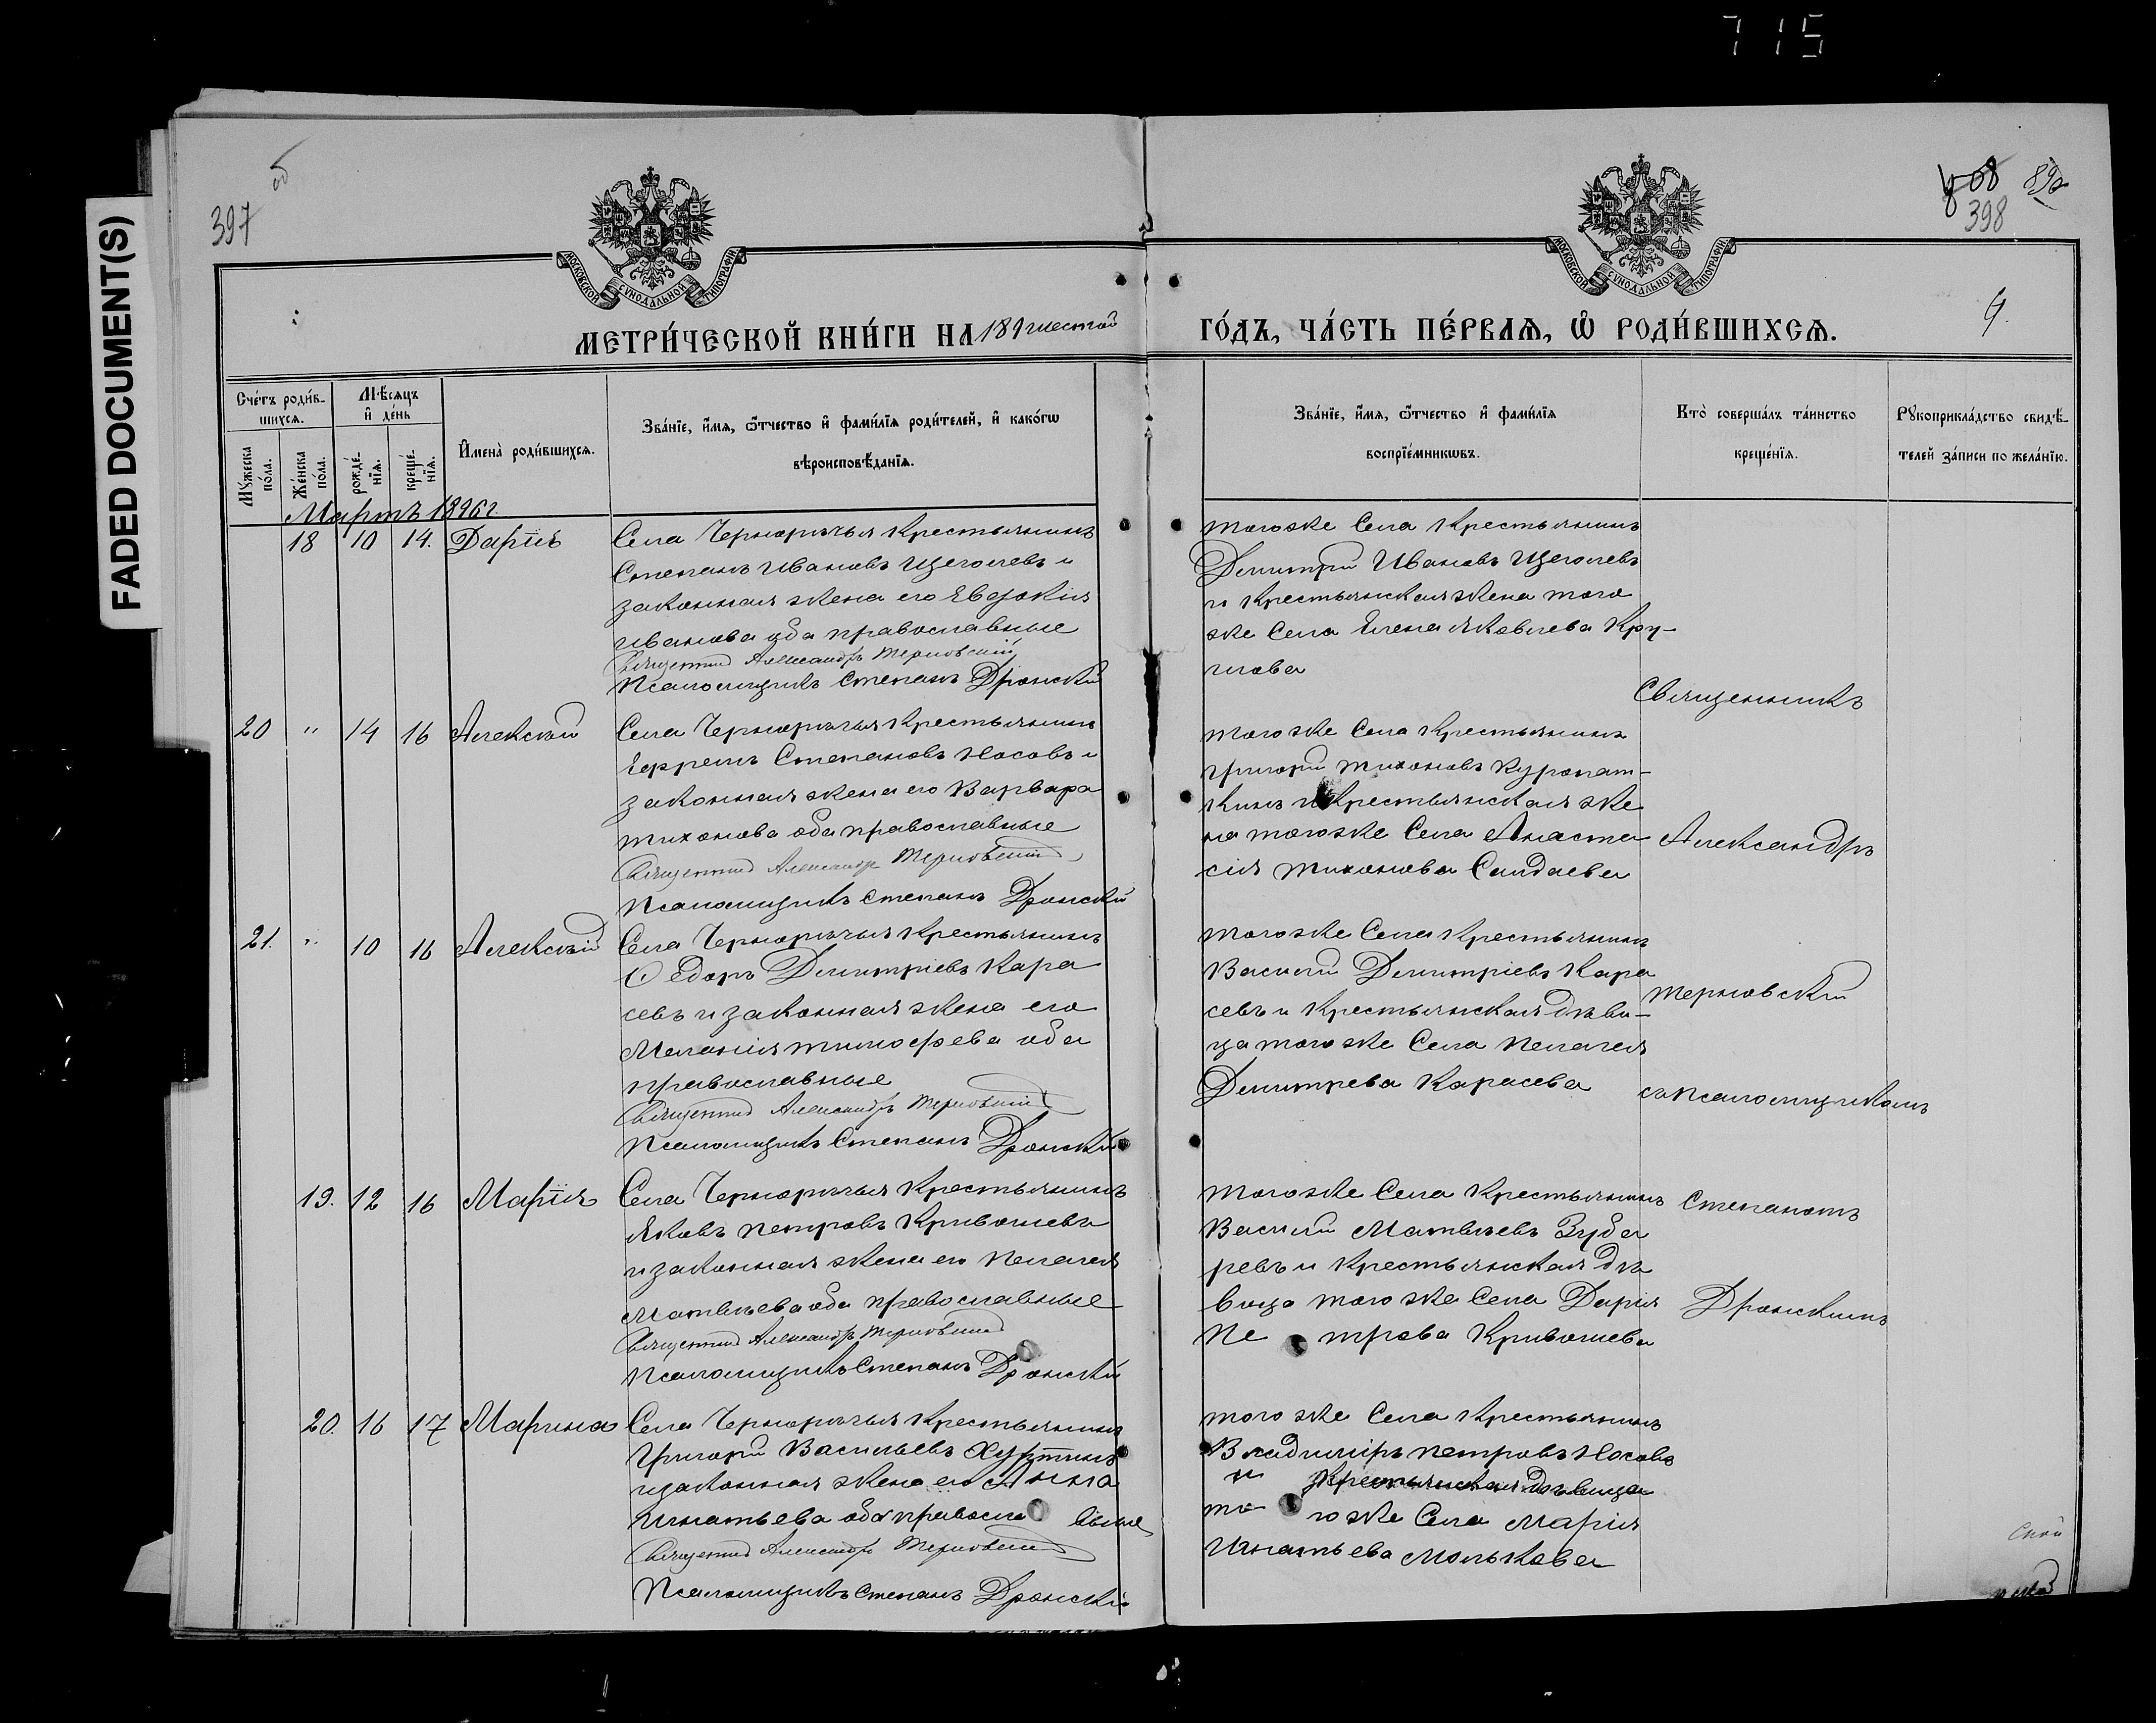 715
FADED DOCUMENT(S)
об
397
408 89
398
МОСКОВСКОЙ СѴНОДАЛЬНОЙ ТИПОГРАФІИ
МОСКОВСКОЙ СѴНОДАЛЬНОЙ ТИПОГРАФІИ
МЕТРИ́ЧЕСКОЙ КНИ́ГИ НА 189шестой
ГО́ДЪ, ЧА́СТЬ ПЕ́РВАѦ, Ѡ РОДИ́ВШИХСѦ.
Сче́тъ роди́в-
шихся.
Мѣ́сяцъ
и҆ де́нь
Мꙋ́жеска по́ла.
Же́нска по́ла.
рожде́-нїѧ.
креще́-нїѧ.
И҆мена̀ роди́вшихсѧ.
Зва́нїе, и҆́мѧ, ѻ҆́тчество и҆ фами́лїѧ роди́телей, и҆ како́гѡ
вѣроисповѣ́данїѧ.
Зва́нїе, и҆́мѧ, ѻ҆́тчество и҆ фами́лїѧ
воспрїе́мникѡвъ.
Кто̀ соверша́лъ та́инство
креще́нїѧ.
Рꙋкоприкла́дство свидѣ́-
телей за́писи по жела́нїю.
Мартъ 1896 г
18 10 14. Дарія
Села Чернорѣчья Крестьянинъ
Степанъ Ивановъ Щеголевъ и
законная жена его Евдокія
Иванова оба православные
Священникъ Александръ Терновскій
Псаломщикъ Степанъ Дронскій
тогоже Села Крестьянинъ
Димитрій Ивановъ Щеголевъ
и Крестьянская жена того
же Села Елена Яковлева Кру-
глова
Священникъ
20 " 14 16 Алексѣй
Села Чернорѣчья Крестьянинъ
Ефремъ Степановъ Носовъ и
законная жена его Варвара
Тихонова оба православные
Священникъ Александръ Терновскій
Псаломщикъ Степанъ Дронскій
тогоже Села Крестьянинъ
Григорій Тихоновъ Куропат-
кинъ и Крестьянская же
на тогоже Села Анаста
сія Тихонова Сандаева
Александръ
21. " 10 16 Алексѣй
Села Чернорѣчья Крестьянинъ
Ѳедоръ Димитріевъ Кара
севъ и законная жена его
Меланія Тимофева оба
православные
Священникъ Александръ Терновскій
Псаломщикъ Степанъ Дронскій
тогоже Села Крестьянинъ
Василій Димитріевъ Кара
севъ и Крестьянская дѣви-
ца тогоже Села Пелагея
Димитрева Карасева
Терновскій
съ псаломщикомъ
19. 12 16 Марія
Села Чернорѣчья Крестьянинъ
Яковъ Петровъ Кривошевъ
и законная жена его Пелагея
Матвѣева оба православные
Священникъ Александръ Терновскій
Псаломщикъ Степанъ Дронскій
тогоже Села Крестьянинъ
Василій Матвѣевъ Зуба
ревъ и Крестьянская дѣ
вица тогоже Села Дарія
Петрова Кривошева
Степаномъ
Дронскимъ
20. 16 17 Марина
Села Чернорѣчья Крестьянинъ
Григорій Васильевъ Хуртинъ
и законная жена его Анна
Игнатьева оба православные
Священникъ Александръ Терновскій
Псаломщикъ Степанъ Дронскій
того же Села Крестьянинъ
Владиміръ Петровъ Носовъ
и Крестьянская дѣвица
тогоже Села Марія
Игнатьева Молькова